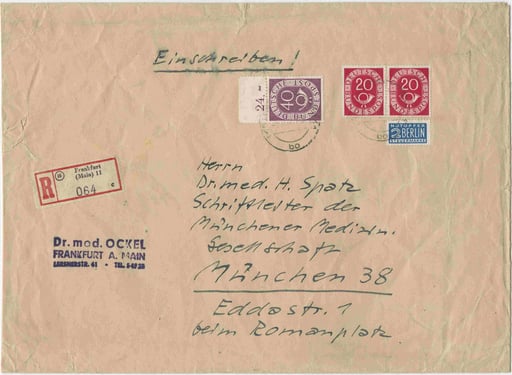 Einschreiben!
24.
40
DEUTSCHE BUNDESPOST
20
DEUTSCHE BUNDESPOST
20
DEUTSCHE BUNDESPOST
NOTOPFER
2 BERLIN
STEUERMARKE
R
Frankfurt
(Main) 11
064 c
Herrn
Dr. med. H. Spatz
Schriftleiter der
Münchener Medizin.
Gesellschaft
München 38
Eddastr. 1
beim Romanplatz.
Dr. med. OCKEL
FRANKFURT A. MAIN
41 • TEL.